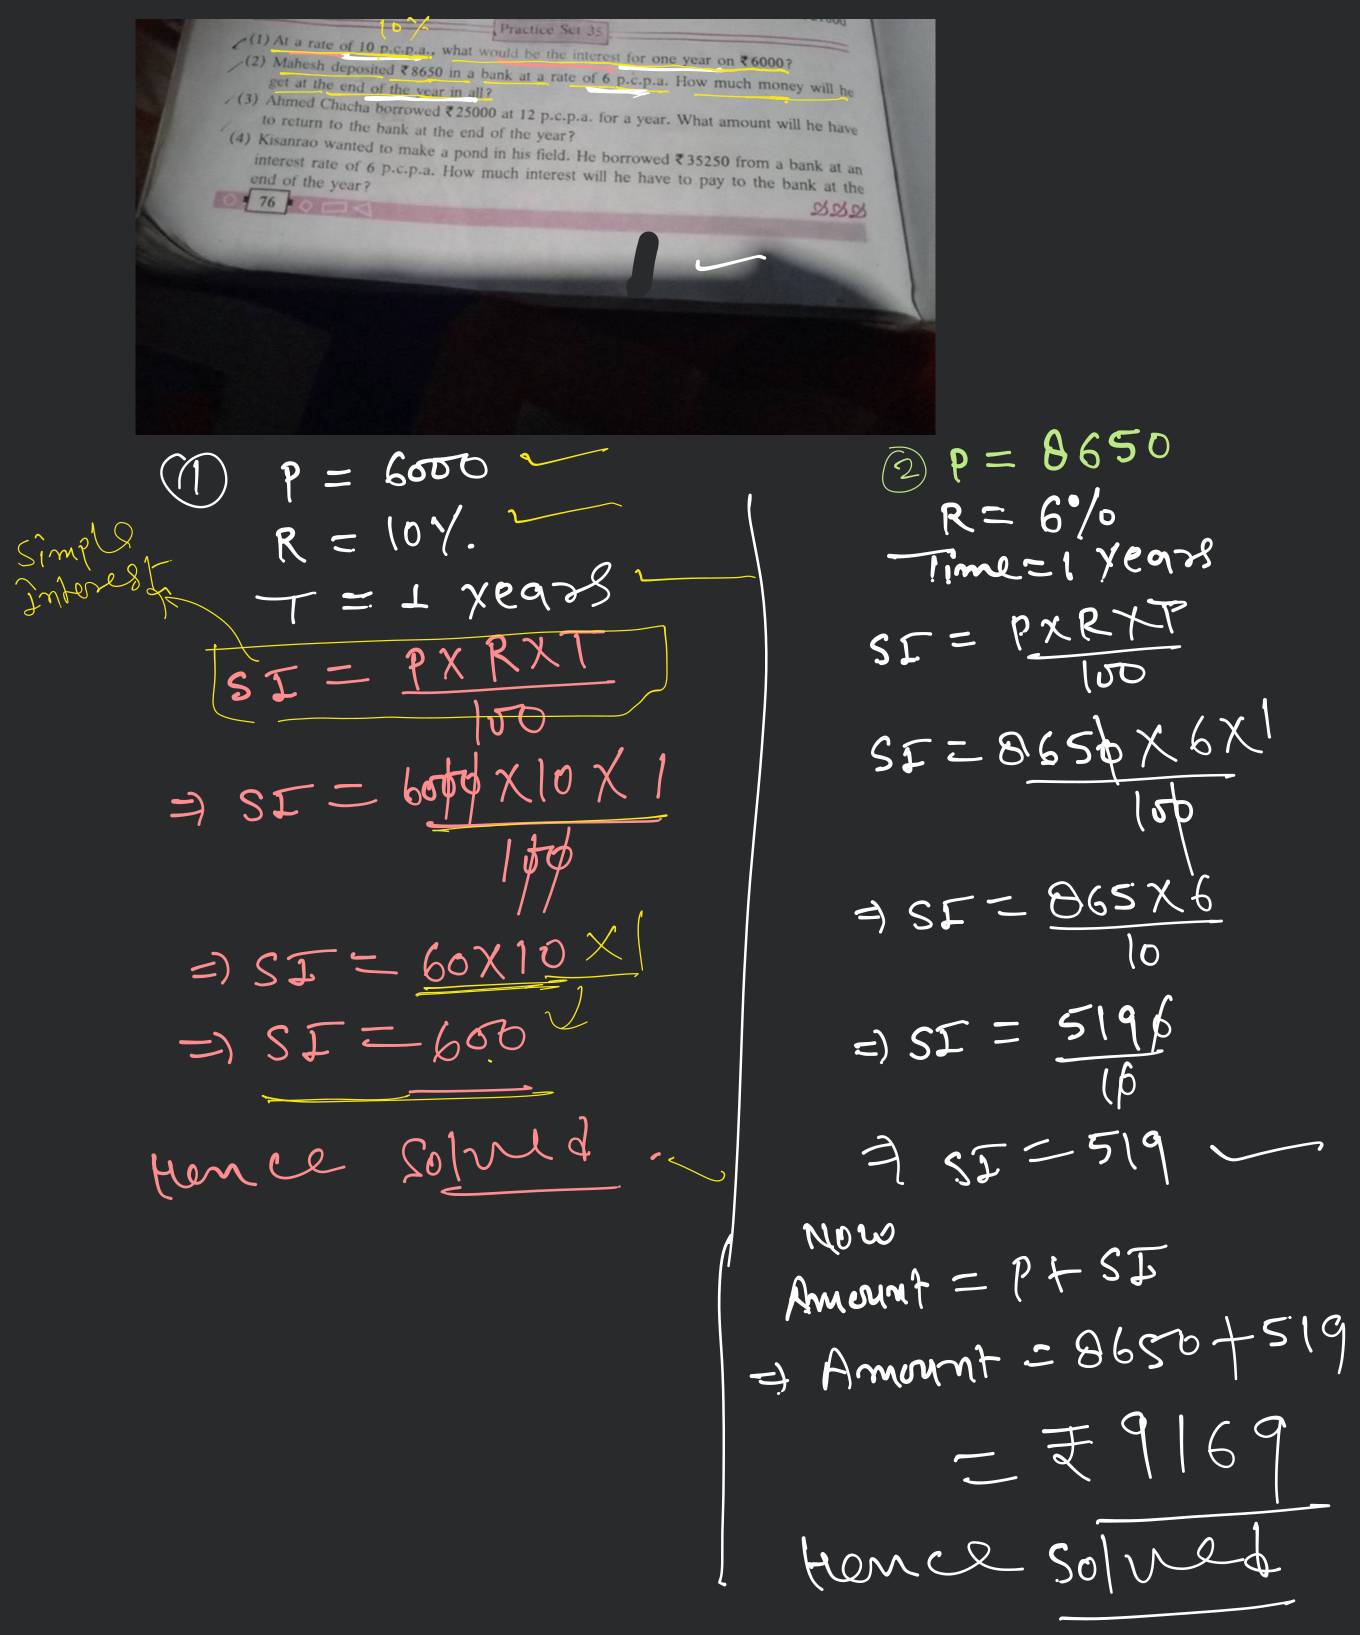 10%
Practice Set 35
(1) At a rate of 10 p.c.p.a., what would be the interest for one year on ₹6000?
(2) Mahesh deposited ₹8650 in a bank at a rate of 6 p.c.p.a. How much money will he
get at the end of the year in all?
(3) Ahmed Chacha borrowed ₹25000 at 12 p.c.p.a. for a year. What amount will he have
to return to the bank at the end of the year?
(4) Kisanrao wanted to make a pond in his field. He borrowed ₹35250 from a bank at an
interest rate of 6 p.c.p.a. How much interest will he have to pay to the bank at the
end of the year?
76
1 P = 6000
R = 10%.
T = 1 years
Simple
interest
SI = P X R X T
100
⇒ SI = 6000 X 10 X 1
100
⇒ SI = 60 X 10 X 1
⇒ SI = 600
Hence Solved
2 P = 8650
R = 6%
Time = 1 years
SI = P X R X T
100
SI = 8650 X 6 X 1
100
⇒ SI = 865 X 6
10
⇒ SI = 5190
10
⇒ SI = 519
Now
Amount = P + SI
⇒ Amount = 8650 + 519
= ₹ 9169
Hence Solved